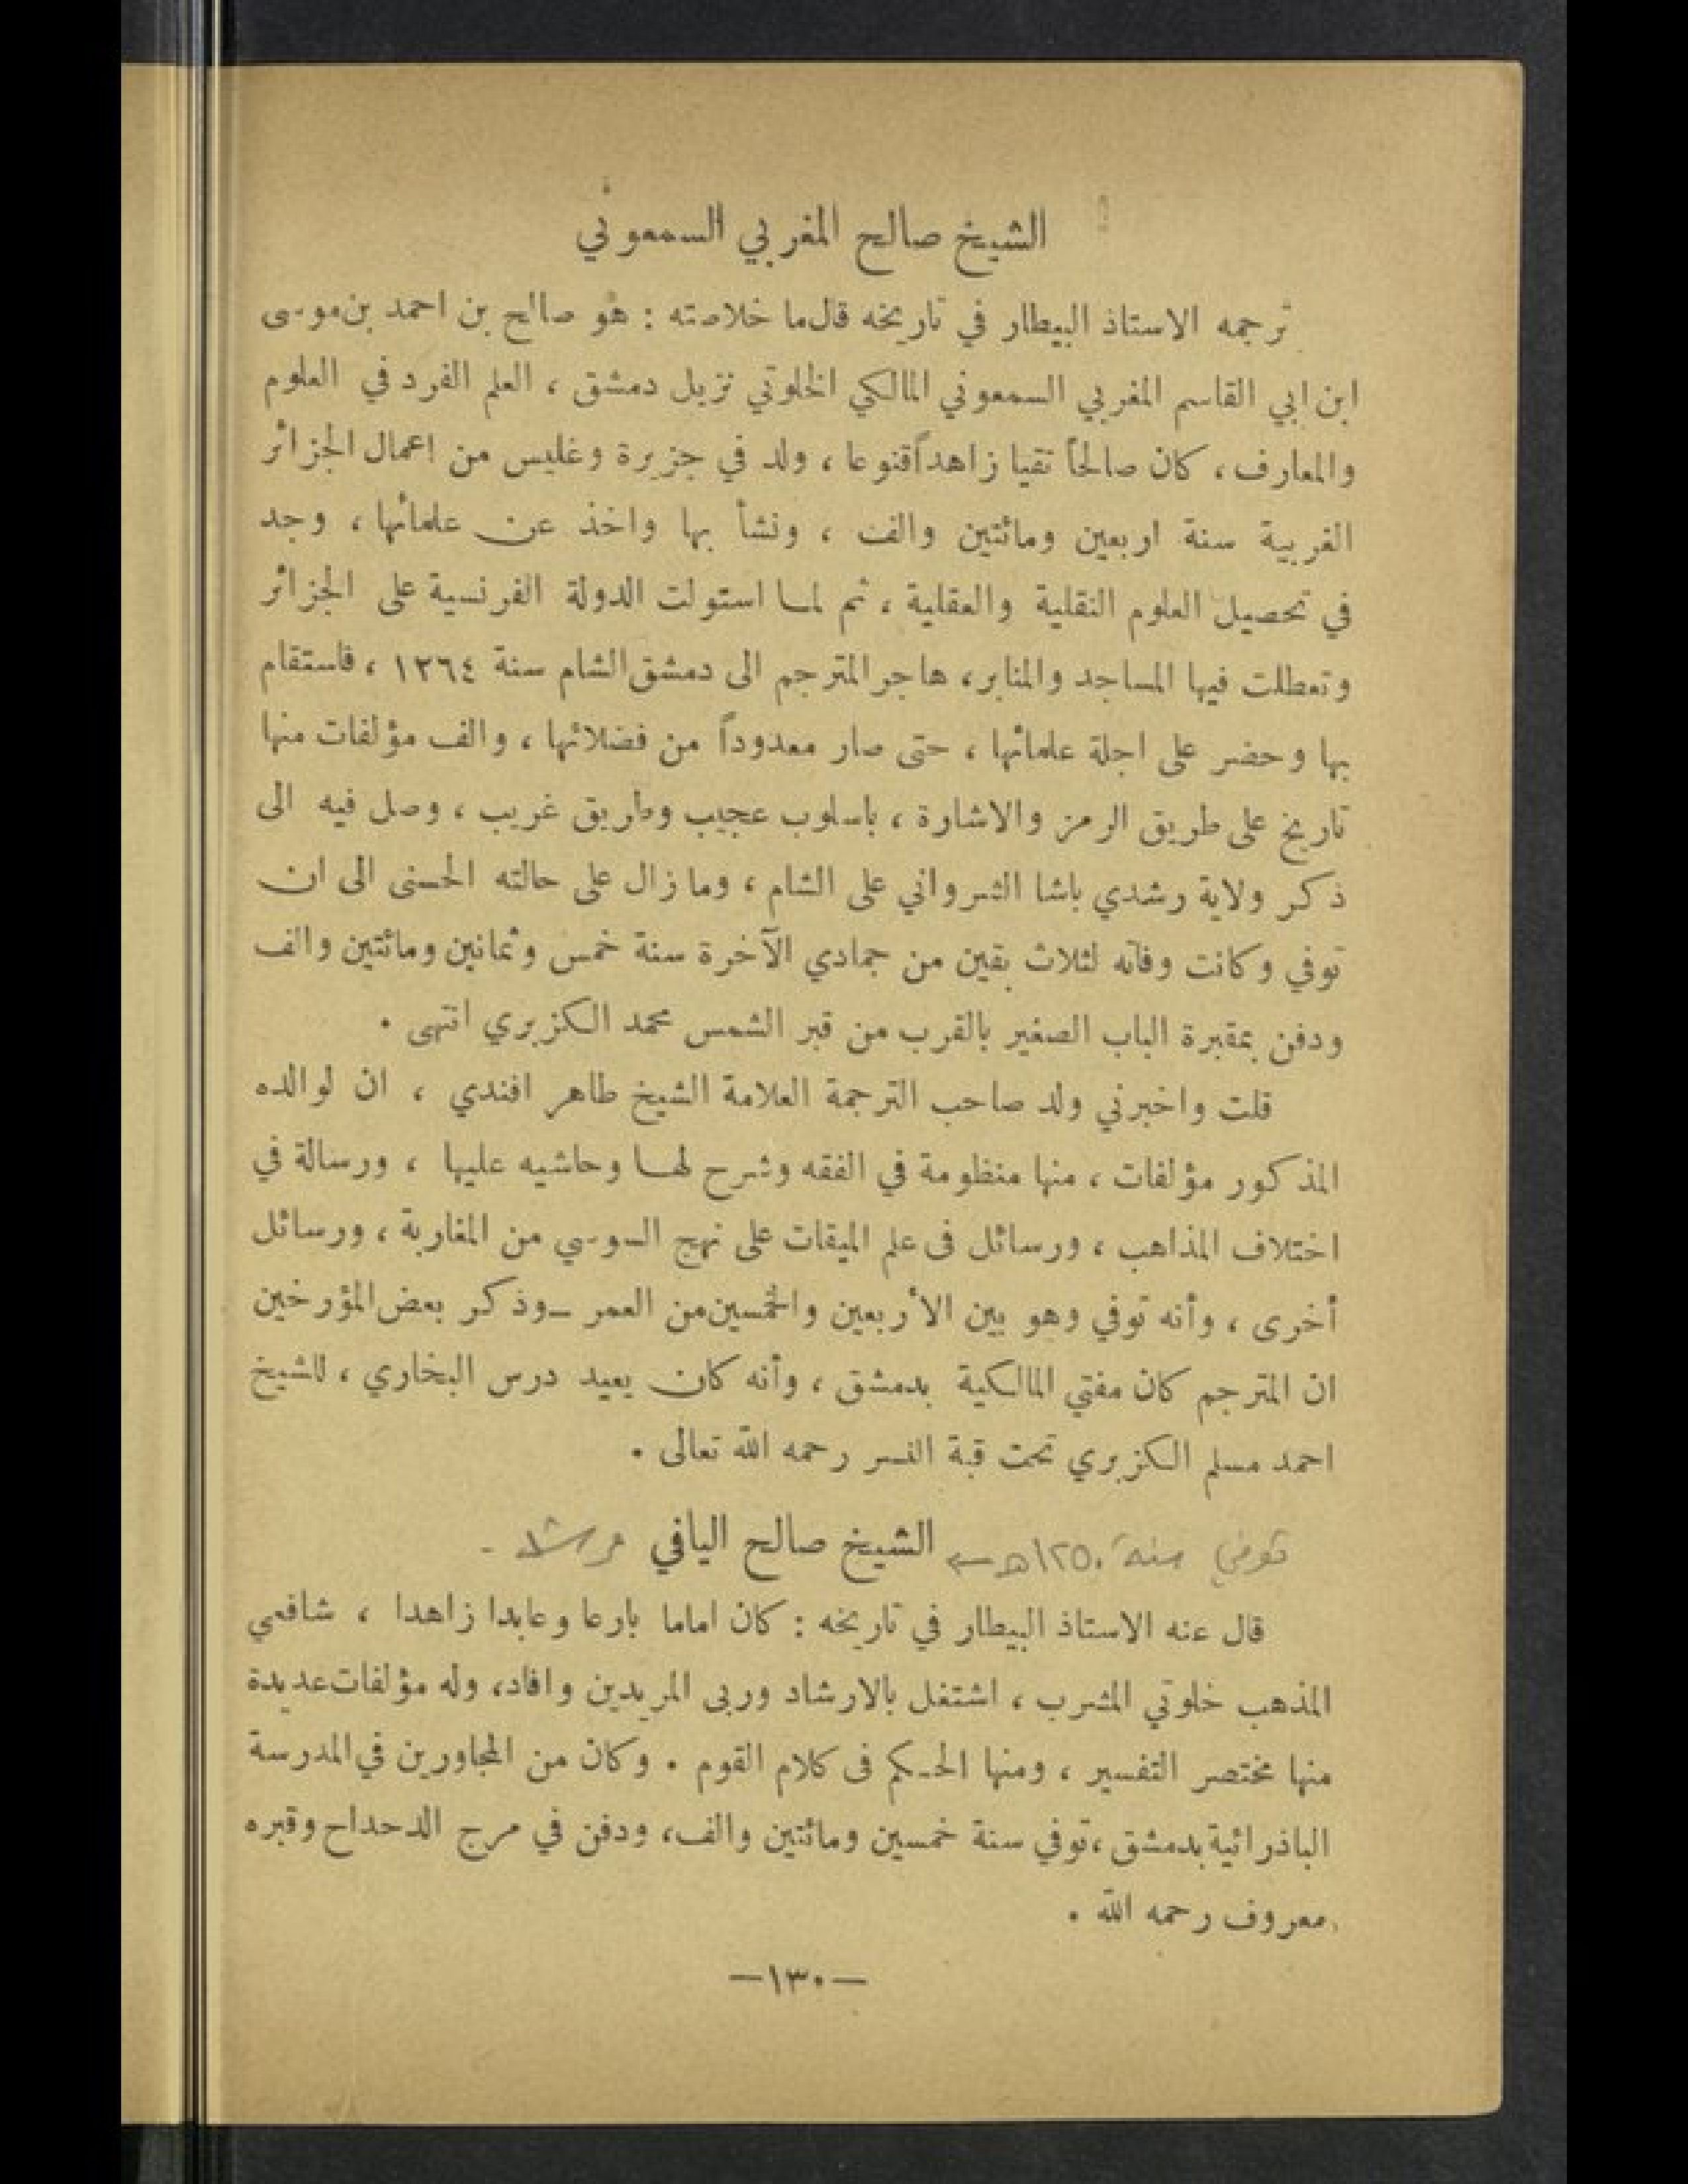 الشيخ صالح المغربي السمعوني
ترجمه الاستاذ البيطار في تاريخه قال ما خلاصته : هو صالح بن احمد بن موسى
ابن ابي القاسم المغربي السمعوني المالكي الخلوتي نزيل دمشق ، العلم الفرد في العلوم
والمعارف ، كان صالحاً تقيا زاهداً قنوعا ، ولد في جزيرة وغليس من اعمال الجزائر
الغربية سنة اربعين ومائتين والف ، ونشأ بها واخذ عن علمائها ، وجد
في تحصيل العلوم النقلية والعقلية ، ثم لما استولت الدولة الفرنسية على الجزائر
وتعطلت فيها المساجد والمنابر ، هاجر المترجم الى دمشق الشام سنة ١٢٦٤ ، فاستقام
بها وحضر على اجلة علمائها ، حتى صار معدوداً من فضلائها ، والف مؤلفات منها
تاريخ على طريق الرمز والاشارة ، باسلوب عجيب وطريق غريب ، وصل فيه الى
ذكر ولاية رشدي باشا الشرواني على الشام ، وما زال على حالته الحسنى الى ان
توفي وكانت وفاته لثلاث بقين من جمادي الآخرة سنة خمس وثمانين ومائتين والف
ودفن بمقبرة الباب الصغير بالقرب من قبر الشمس محمد الكزبري انتهى .
قلت واخبرني ولد صاحب الترجمة العلامة الشيخ طاهر افندي ، ان لوالده
المذكور مؤلفات ، منها منظومة في الفقه وشرح لها وحاشيه عليها ، ورسالة في
اختلاف المذاهب ، ورسائل فى علم الميقات على نهج السوسي من المغاربة ، ورسائل
أخرى ، وأنه توفي وهو بين الأربعين والخمسين من العمر ــ وذكر بعض المؤرخين
ان المترجم كان مفتي المالكية بدمشق ، وأنه كان يعيد درس البخاري ، للشيخ
احمد مسلم الكزبري تحت قبة النسر رحمه الله تعالى .
توفي سنة ١٢٥٠هـ ← الشيخ صالح اليافي
قال عنه الاستاذ البيطار في تاريخه : كان اماما بارعا وعابدا زاهدا ، شافعي
المذهب خلوتي المشرب ، اشتغل بالارشاد وربى المريدين وافاد، وله مؤلفات عديدة
منها مختصر التفسير ، ومنها الحكم فى كلام القوم . وكان من المجاورين في المدرسة
الباذرائية بدمشق ، توفي سنة خمسين ومائتين والف، ودفن في مرج الدحداح وقبره
معروف رحمه الله .
—١٣٠—